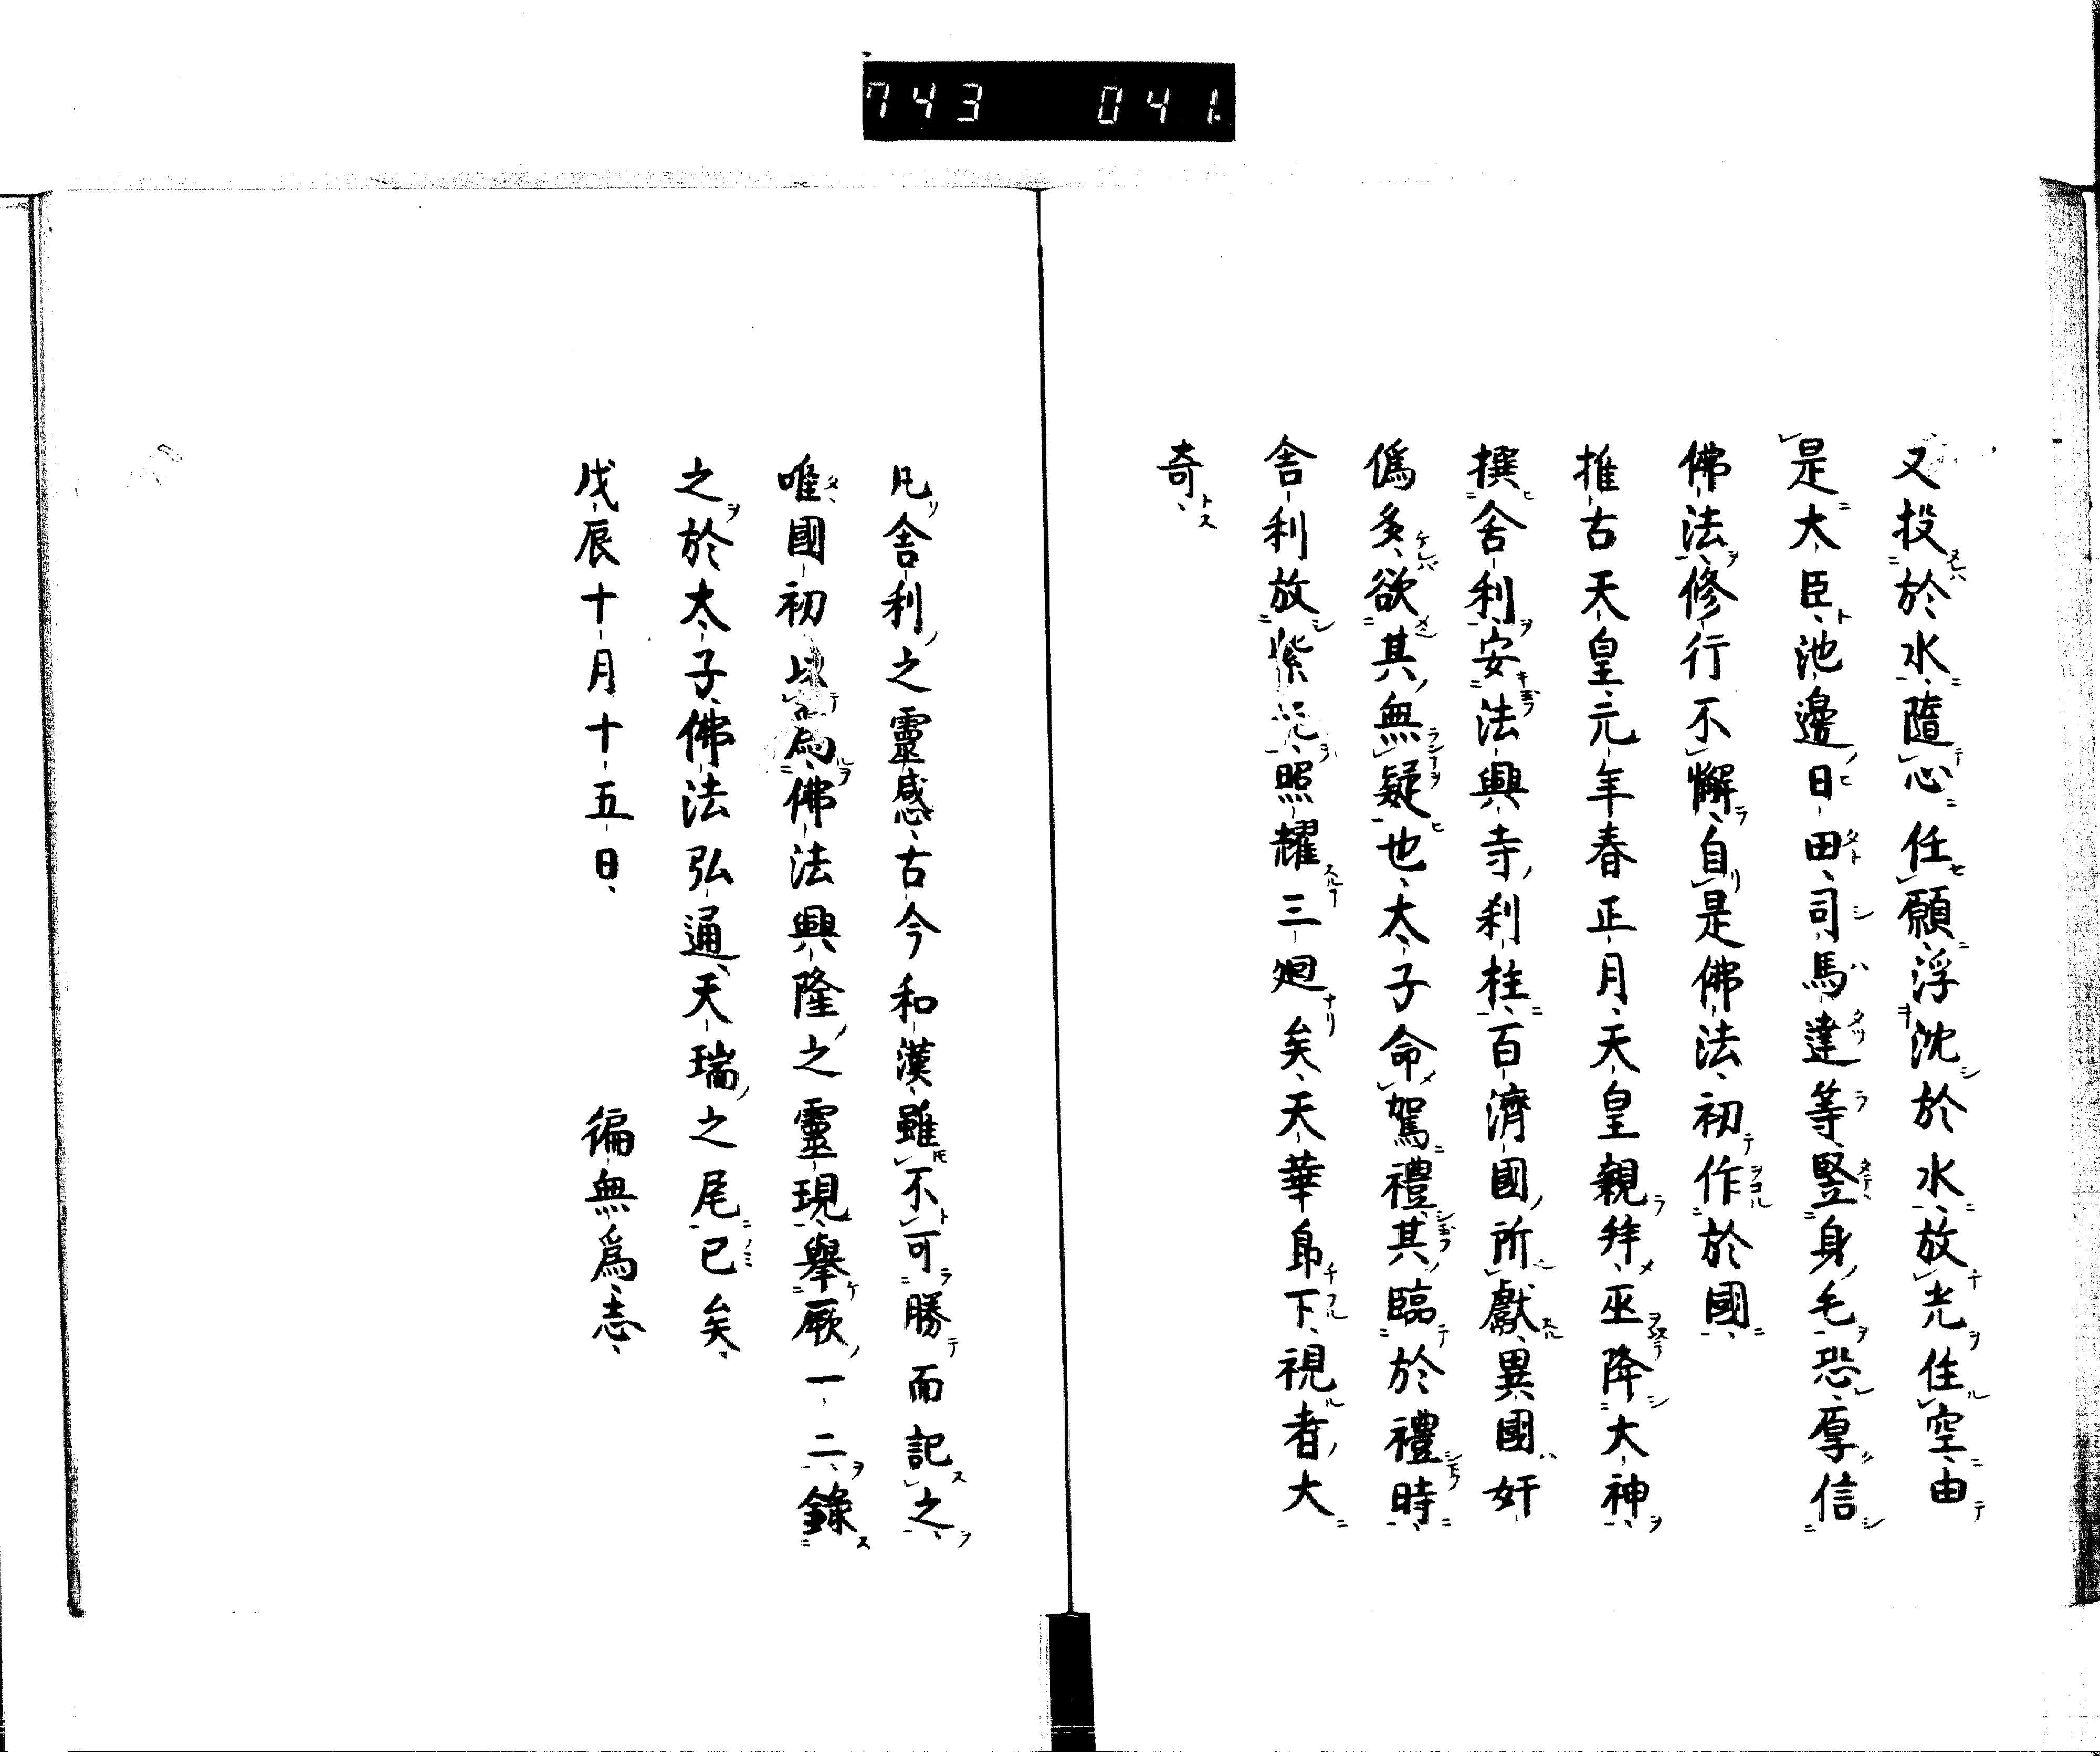 743 041
又投於水隨心任願浮沈於水放光住空由
是大臣池邊日田司馬達等竪身毛恐厚信
佛法修行不懈自是佛法初作於國
推古天皇元年春正月天皇親拜巫降大神
撰舍利安法興寺刹柱百濟國所獻異國奸
僞多欲其無疑也太子命駕禮其臨於禮時
舍利放紫光照耀三廻矣天華帛下視者大
奇
凡舍利之靈感古今和漢雖不可勝而記之
唯國初以爲佛法興隆之靈現舉厥一二錄
之於太子佛法弘通天瑞之尾已矣
戊辰十月十五日 徧無爲志